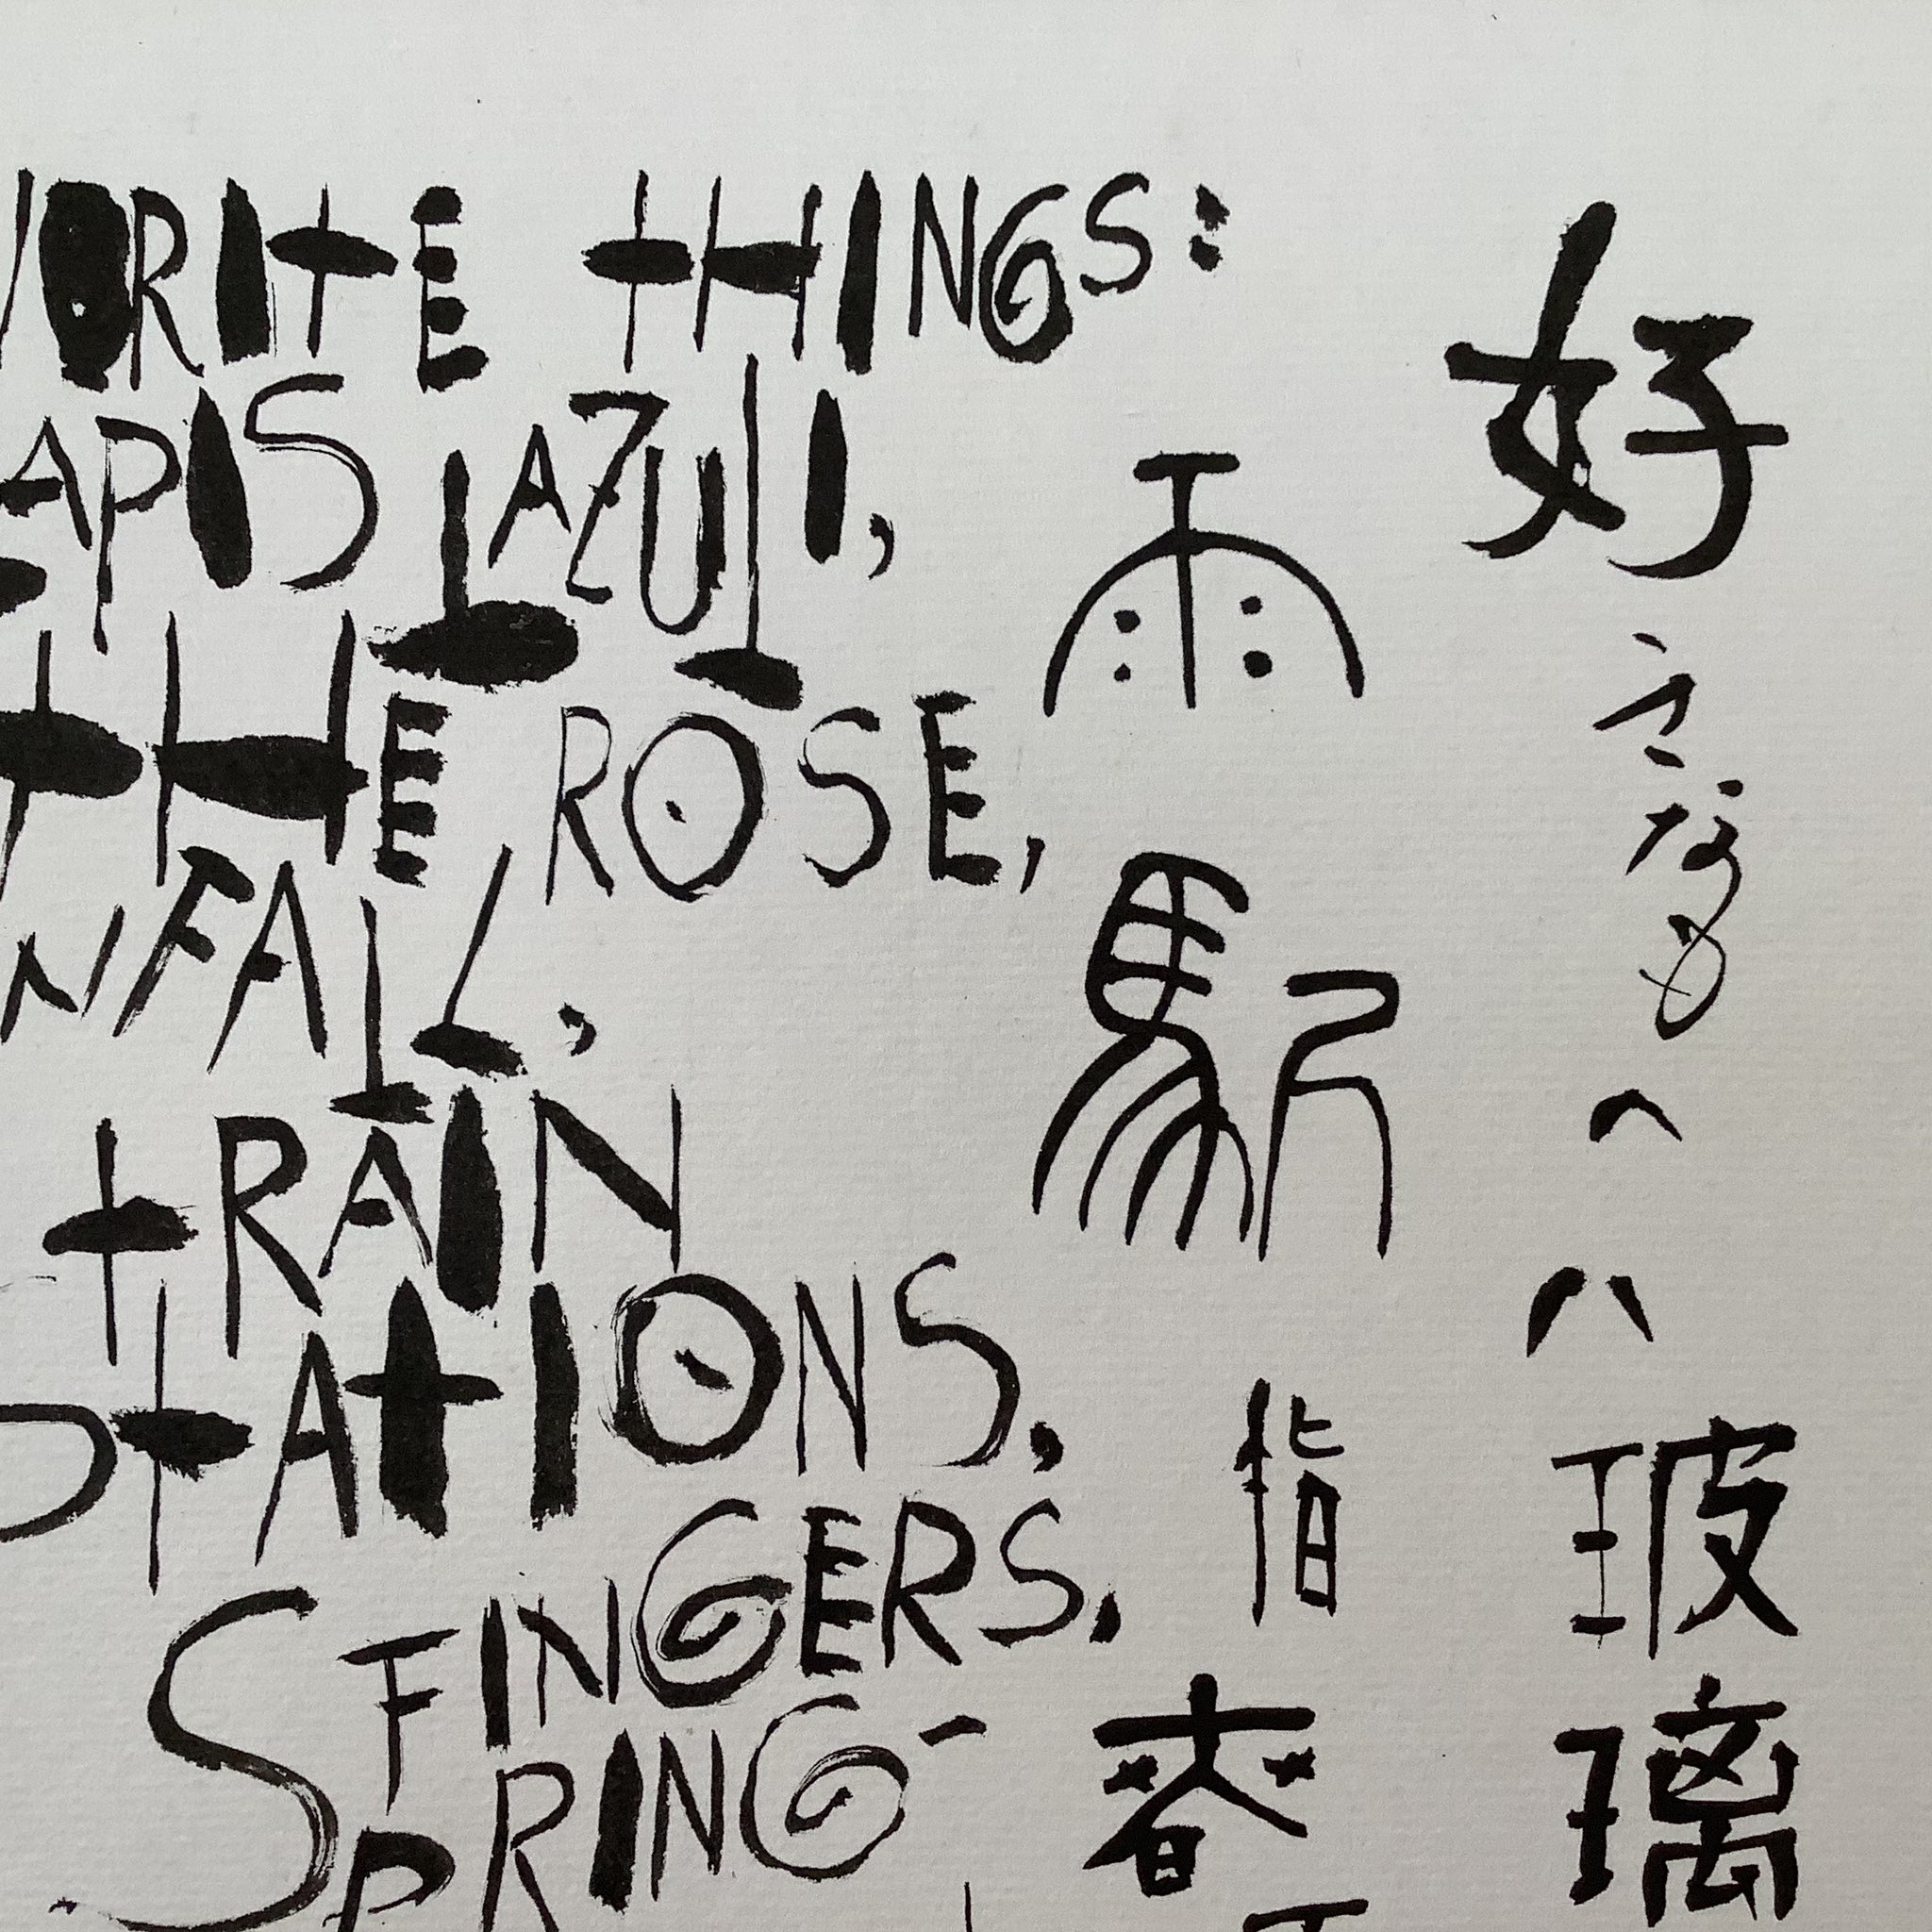 VORITE THINGS:
APIS LAZULI,
THE ROSE,
NFALL,
TRAIN
STATIONS,
FINGERS,
SPRING-
好きなものハ玻璃
雨駅指春